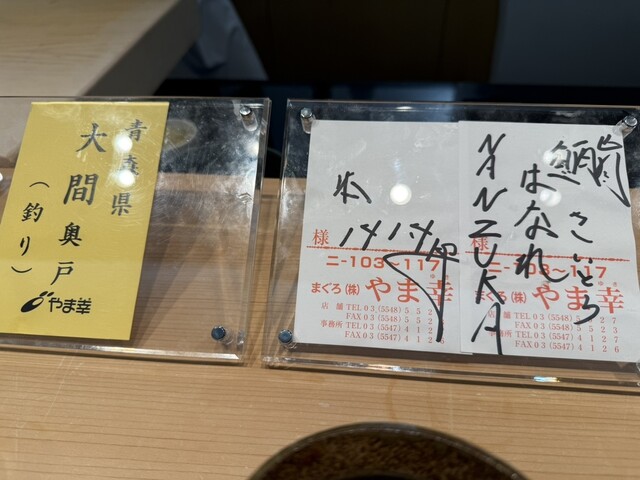 青森県
大間奥戸
（釣り）
やま幸
様
ニ-103~117
まぐろ(株)やま幸
店舗 TEL 03 (5548) 5 5 2
FAX 03 (5548) 5 5 2
事務所 TEL 03 (5547) 4 1 2
FAX 03 (5547) 4 1 2
鮨
さいとう
はなれ
NANZUKA
様
まぐろ(株)やま幸
店舗 TEL 03 (5548) 5 5 2 7
FAX 03 (5548) 5 5 2 3
事務所 TEL 03 (5547) 4 1 2
FAX 03 (5547) 4 1 2 6